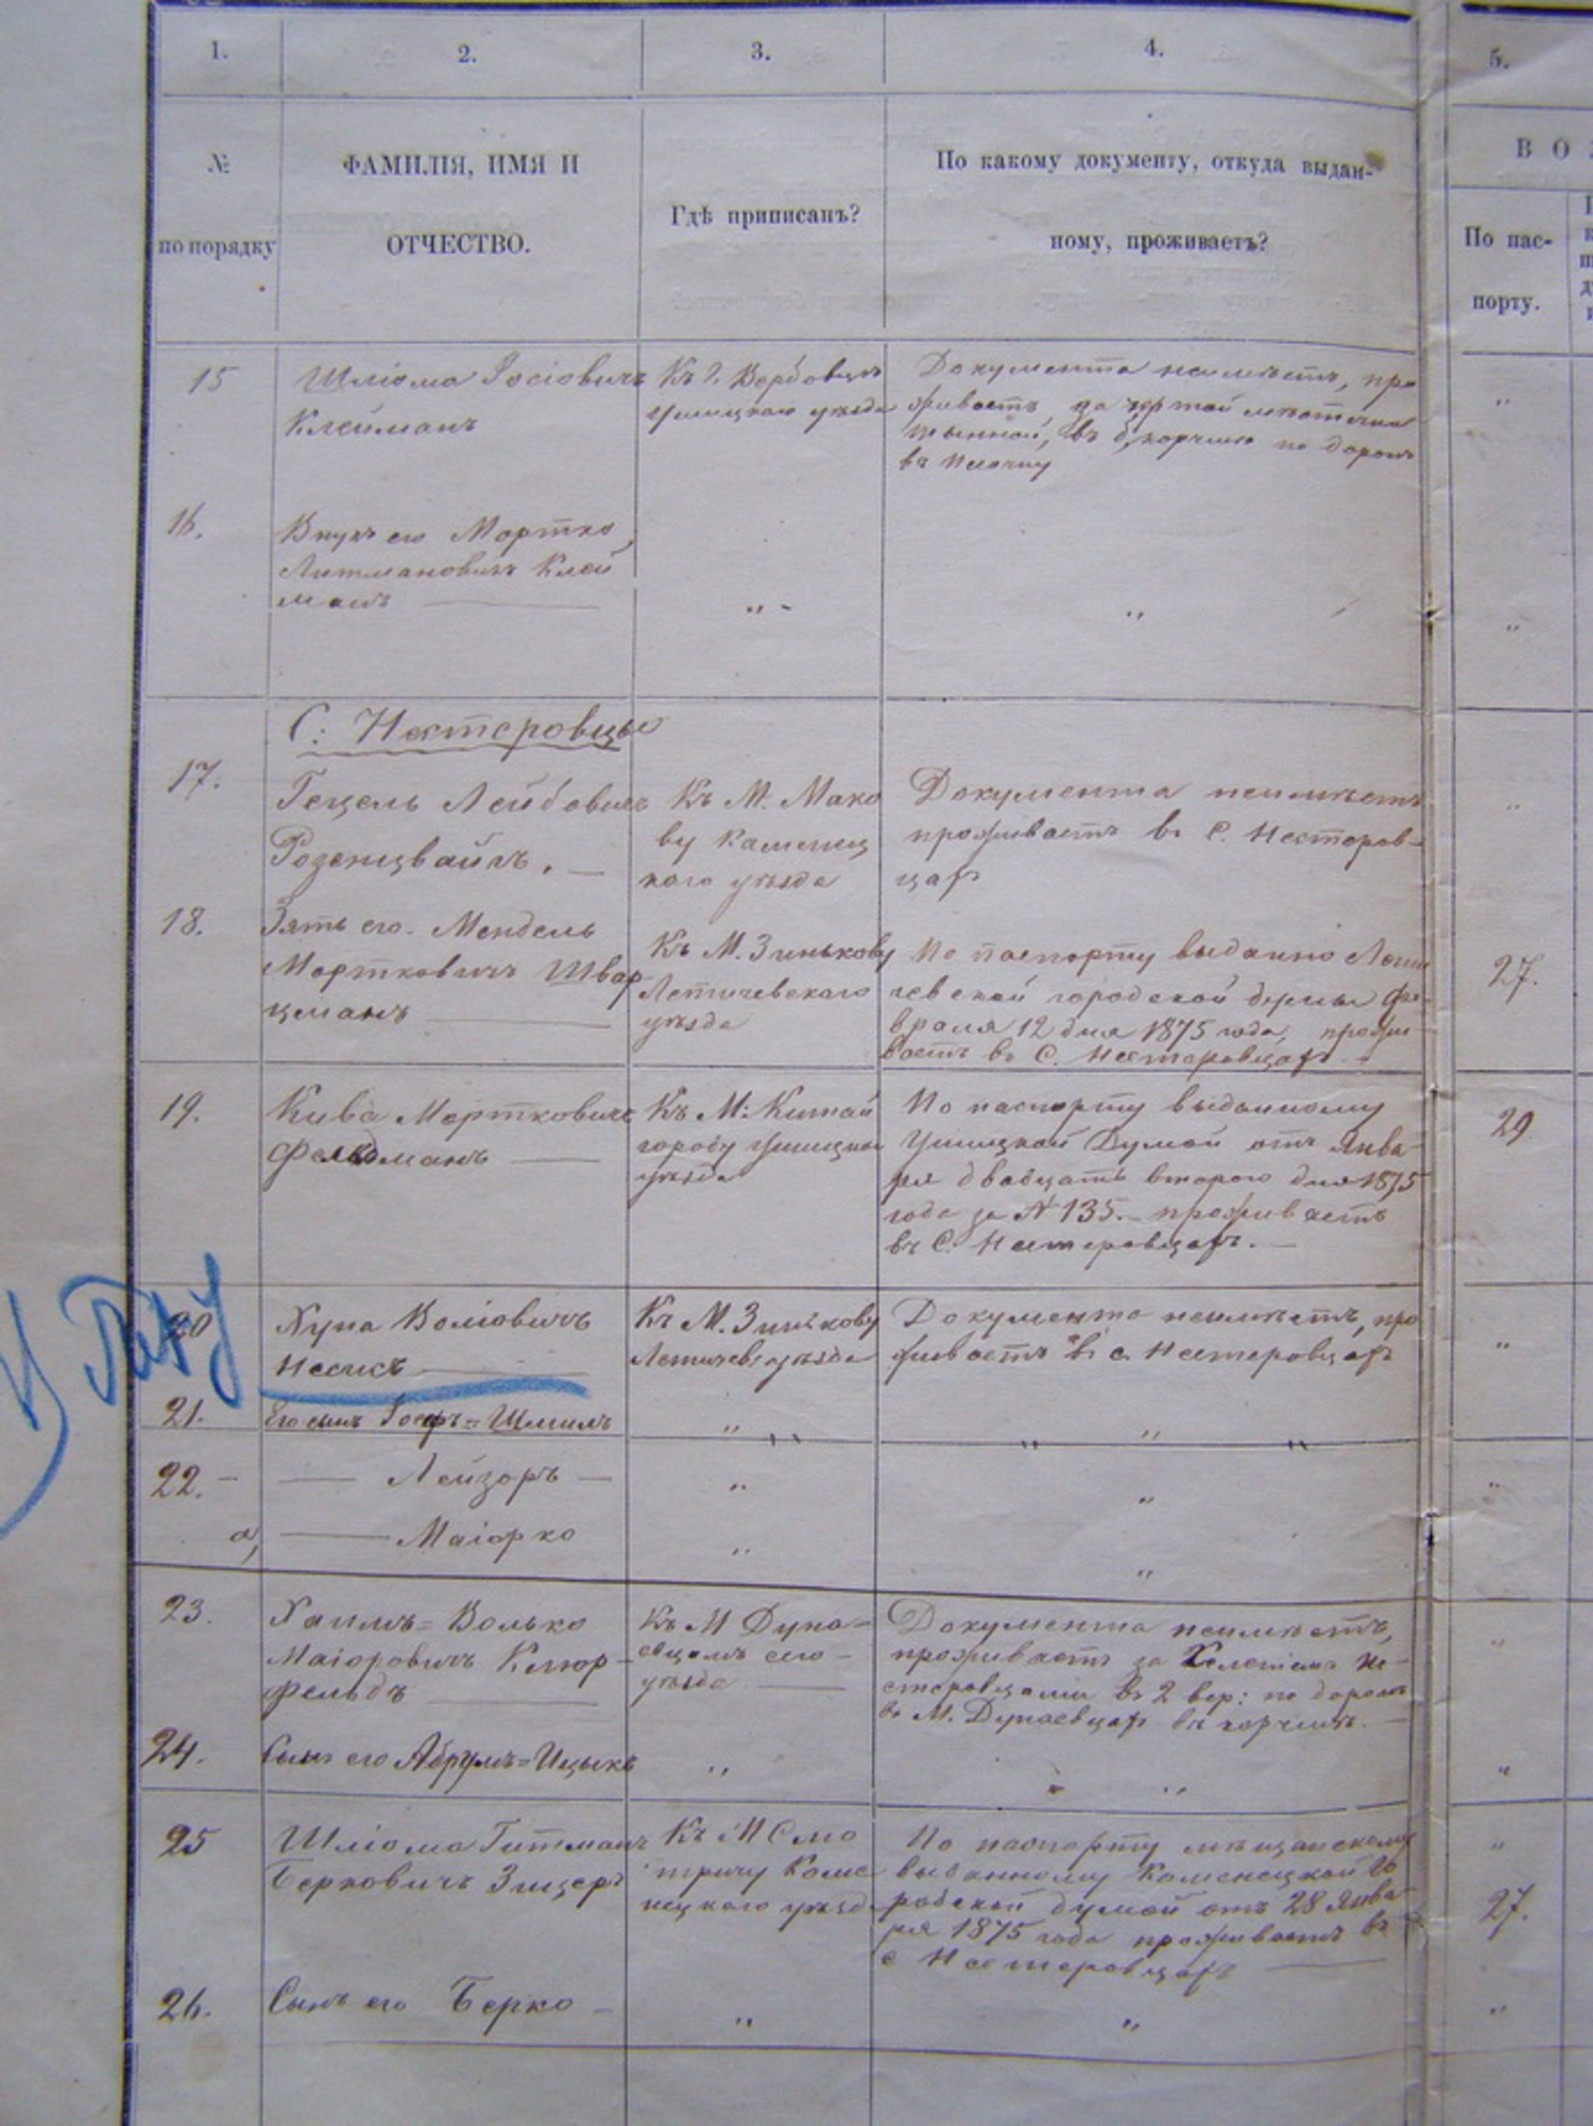 1. 2. 3. 4. 5.
№ по порядку
ФАМИЛІЯ, ИМЯ И
ОТЧЕСТВО.
Гдѣ приписанъ?
По какому документу, откуда выдан-
ному, проживаетъ?
В О
По пас-
порту.
15
Шліома Іосіовичъ
Клейманъ
Къ Вербовцу
Ушицкаго уѣзда
Документа неимѣетъ, про
живаетъ, за чертой
въ корчмѣ по дорогѣ
въ
„
16.
Внукъ его Мортко
Литмановичъ Клей
манъ
„
„
„
С: Нестеровцы
17.
Гецель Лейбовичъ
Розенцвайгъ.
Къ М. Мако
ву Каменец
каго уѣзда
Документа неимѣетъ
проживаетъ въ С. Нестеров-
цахъ
„
18.
Зять его Мендель
Мортковичъ Швар
цманъ
Къ М. Зинькову
Летичевскаго
уѣзда
По паспорту выданно Лети
чевской городской думы Фе-
враля 12 дня 1875 года, прожи
ваетъ въ С. Нестеровцахъ. -
27.
19.
Кива Мортковичъ
Фельдманъ
Къ М: Китай
городу Ушицкаго
уѣзда
По паспорту выданному
Ушицкой Думой отъ Янва-
ря двадцать второго дня 1875
года за № 135. - проживаетъ
въ С. Нестеровцахъ. -
29
20
Хуна Воліовичъ
Несисъ
Къ М. Зинькову
Летичев. уѣзда
Документа неимѣетъ, про
живаетъ въ с. Нестеровцахъ
„
21.
Его сынъ Іосфъ=Шмилъ
„ „
„ „ „
22. -
Лейзоръ -
„
„
„
а,
Маіорко
„
„
23.
Хаимъ=Волько
Маіоровичъ Келюр-
фельдъ
Къ М Дуна-
евцамъ сего
уѣзда
Документа неимѣетъ,
проживаетъ за Не-
стеровцами въ 2 вер: по дорогѣ
въ М. Дунаевцахъ въ корчмѣ. -
„
24.
Сынъ его Абрумъ=Ицыкъ
„
„
„
25
Шліома Гитманъ
Берковичъ Зицеръ
Къ М Смо
тричу Каме
нецкаго уѣзда
По паспорту мѣщанскому
выданному Каменецкой Го
родской думой отъ 28 Янва-
ря 1875 года проживаетъ въ
с Нестеровцахъ
„
27.
26.
Сынъ его Берко -
„
„
„